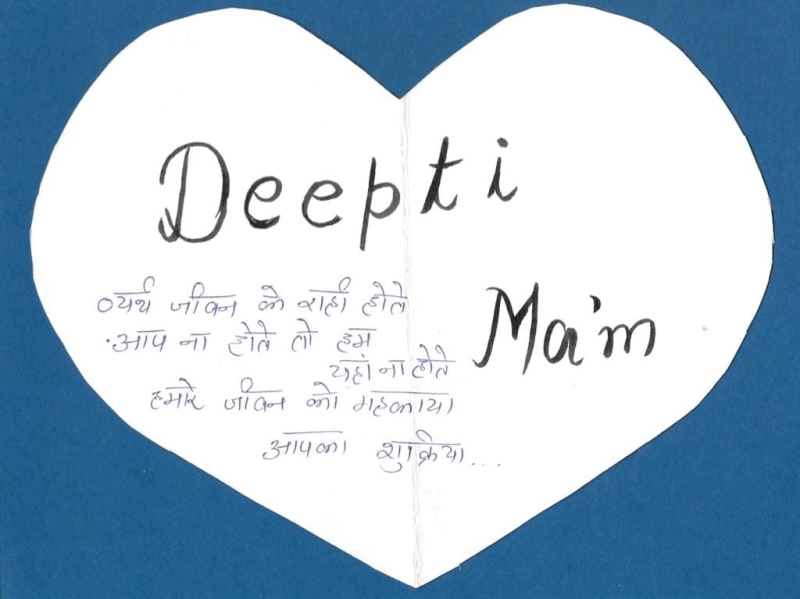 Deepti
Ma'm
व्यर्थ जीवन के राही होते
आप ना होते तो हम
यहां ना होते
हमारे जीवन को महकाया
आपका शुक्रिया...